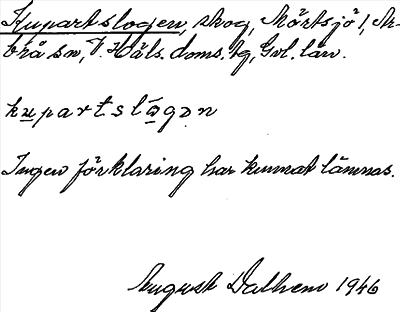 Kupartslogen, skog, Mörtsjö 1, Ar-
brå sn, V. Häls. doms.bg, Gvl. län.
kupartslågən
Ingen förklaring har kunnat lämnas.
August Dalhem 1946